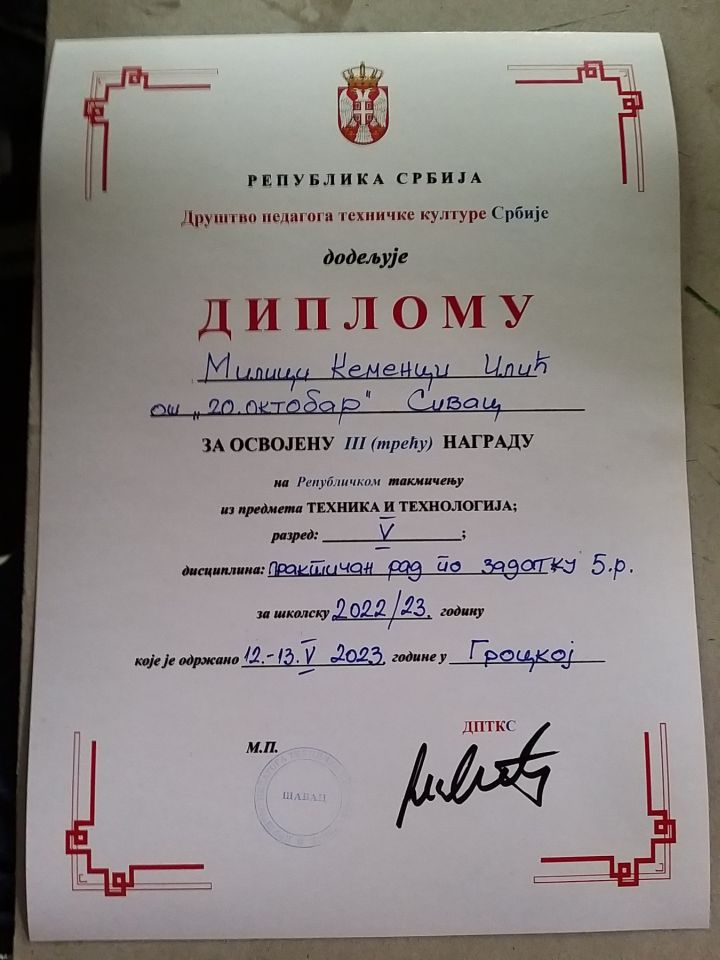 РЕПУБЛИКА СРБИЈА
Друштво педагога техничке културе Србије
додељује
ДИПЛОМУ
Милици Кеменци Илић
ош „20. октобар" Сивац
ЗА ОСВОЈЕНУ III (трећу) НАГРАДУ
на Републичком такмичењу
из предмета ТЕХНИКА И ТЕХНОЛОГИЈА;
разред: V;
дисциплина: практичан рад по задатку 5.р.
за школску 2022/23. годину
које је одржано 12.-13. V 2023. године у Гроцкој
ДПТКС
М.П.
ШАБАЦ